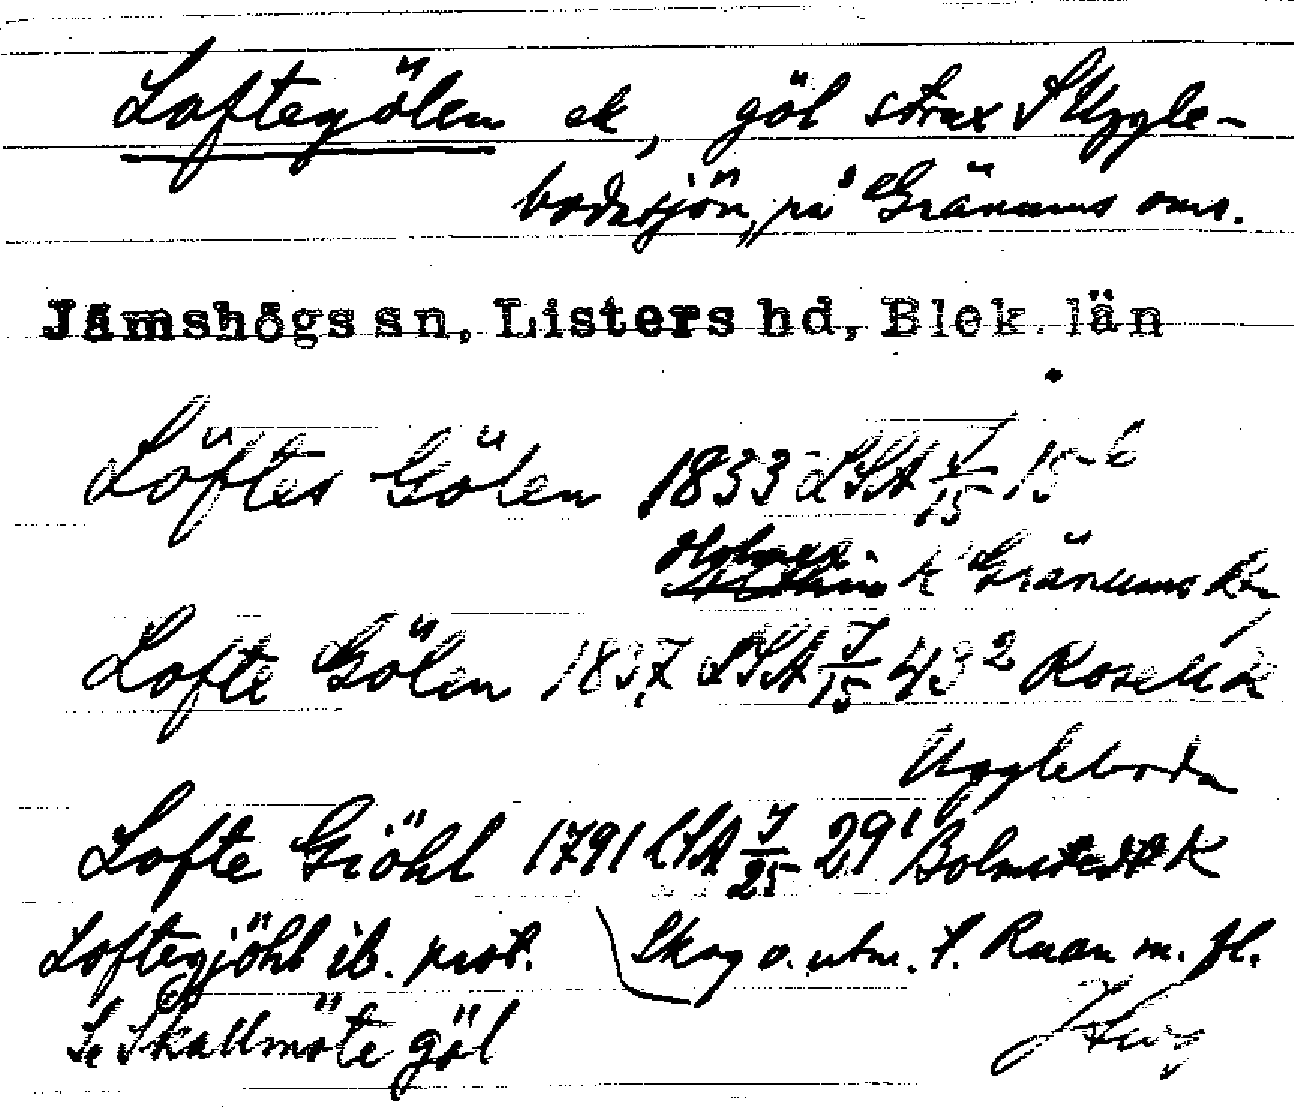 Loftegölen ek, göl strax S Uggle-
bodasjön, på Gränums oms.
Jämshögs sn, Listers hd, Blek. län
Löftes Gölen 1833 LSA J/15 15 6
K Gränums
Lofte Gölen 1837 LSA J/15 43 2 Roselli k
Uggleboda
Lofte Giöhl 1791 LSA J/25 29 1 Bolmstedt K
Loftegjöhl ib. prot. Skog o. utm. t. Ruan m. fl.
Se Skallmöte göl